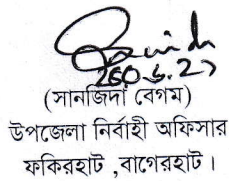 (সানজিদা বেগম)
উপজেলা নির্বাহী অফিসার
ফকিরহাট ,বাগেরহাট।